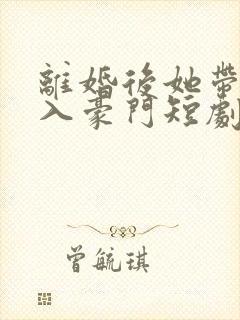 離婚後她帶
入豪門短劇
曾毓琪